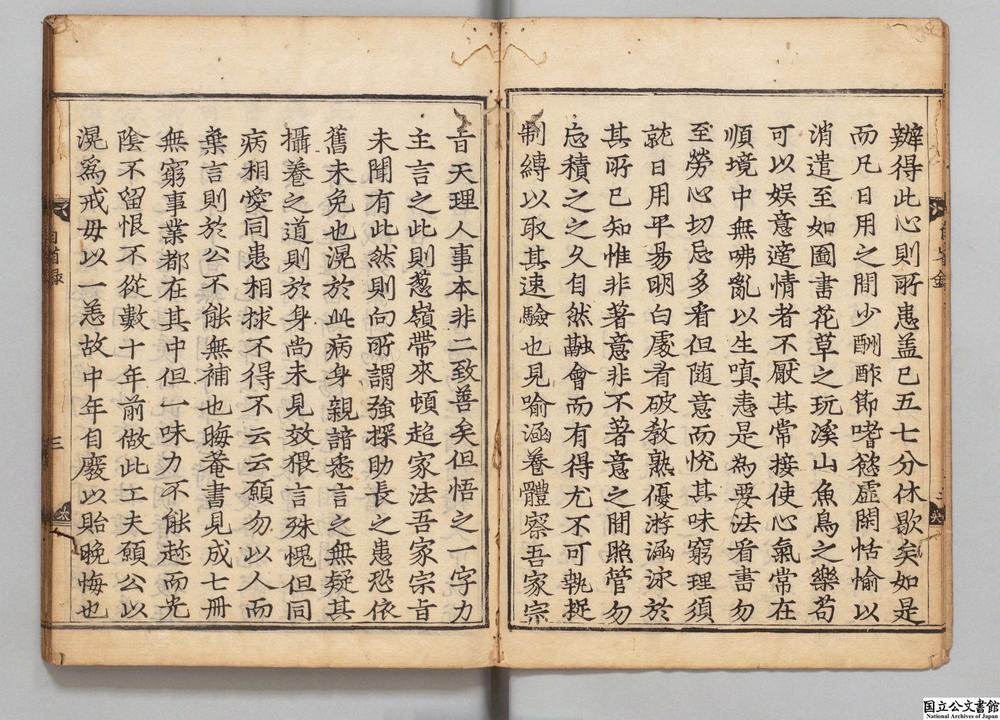 辦得此心則所患蓋已五七分休歇矣如是
而凡日用之間少酬酢節嗜慾虛閑恬愉以
消遣至如圖書花草之玩溪山魚鳥之樂苟
可以娛意適情者不厭其常接使心氣常在
順境中無咈亂以生嗔恚是為要法看書勿
至勞心切忌多看但随意而悅其味窮理須
就日用平易明白處看破教熟優游涵泳於
其所已知惟非著意非不著意之間照管勿
忘積之之久自然融會而有得尤不可執捉
制縛以取其速驗也見喻涵養體察吾家宗
旨天理人事本非二致善矣但悟之一字力
主言之此則葱嶺帶來頓超家法吾家宗旨
未聞有此然則向所謂強探助長之患恐依
舊未免也滉於此病身親諳悉言之無疑其
攝養之道則於身尚未見效猥言殊愧但同
病相愛同患相捄不得不云云願勿以人而
棄言則於公不能無補也晦菴書見成七冊
無窮事業都在其中但一味力不能趂而光
陰不留恨不從數十年前做此工夫願公以
滉爲戒毋以一恙故中年自廢以貽晩悔也
自省録
三
国立公文書館
National Archives of Japan